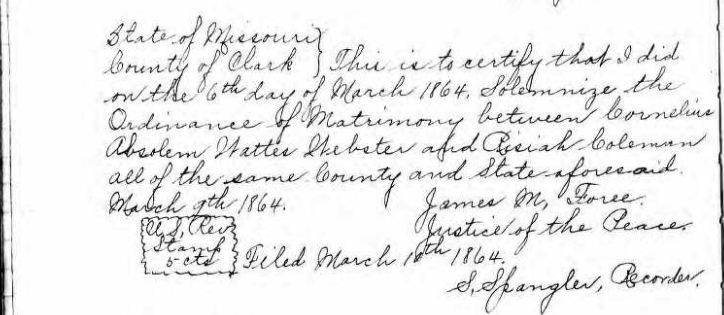 State of Missouri }
County of Clark } This is to certify that I did
on the 6th day of March 1864, Solemnize the
Ordinance of Matrimony between Cornelius
Absolem Wattes Webster and Risiah Coleman
all of the same County and State aforesaid.
March 9th 1864. James M, Foree.
Justice of the Peace.
U.S, Rev
Stamp
5 cts
Filed March 1 th 1864.
S, Spangler, Recorder.